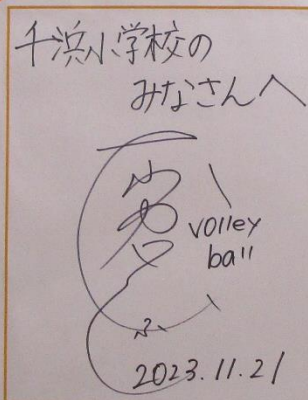 千浜小学校の
みなさんへ
volley
ball
2023.11.21